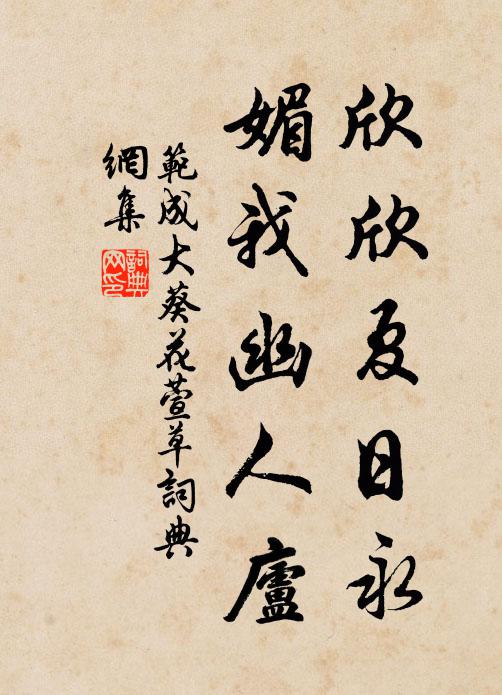 欣欣夏日永
媚我幽人廬
範成大葵花萱草詞典
網集
詞典
网印